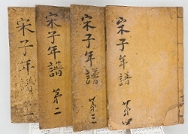 宋子年譜
宋子年譜
第二
宋子年譜
第三
宋子年譜
第四